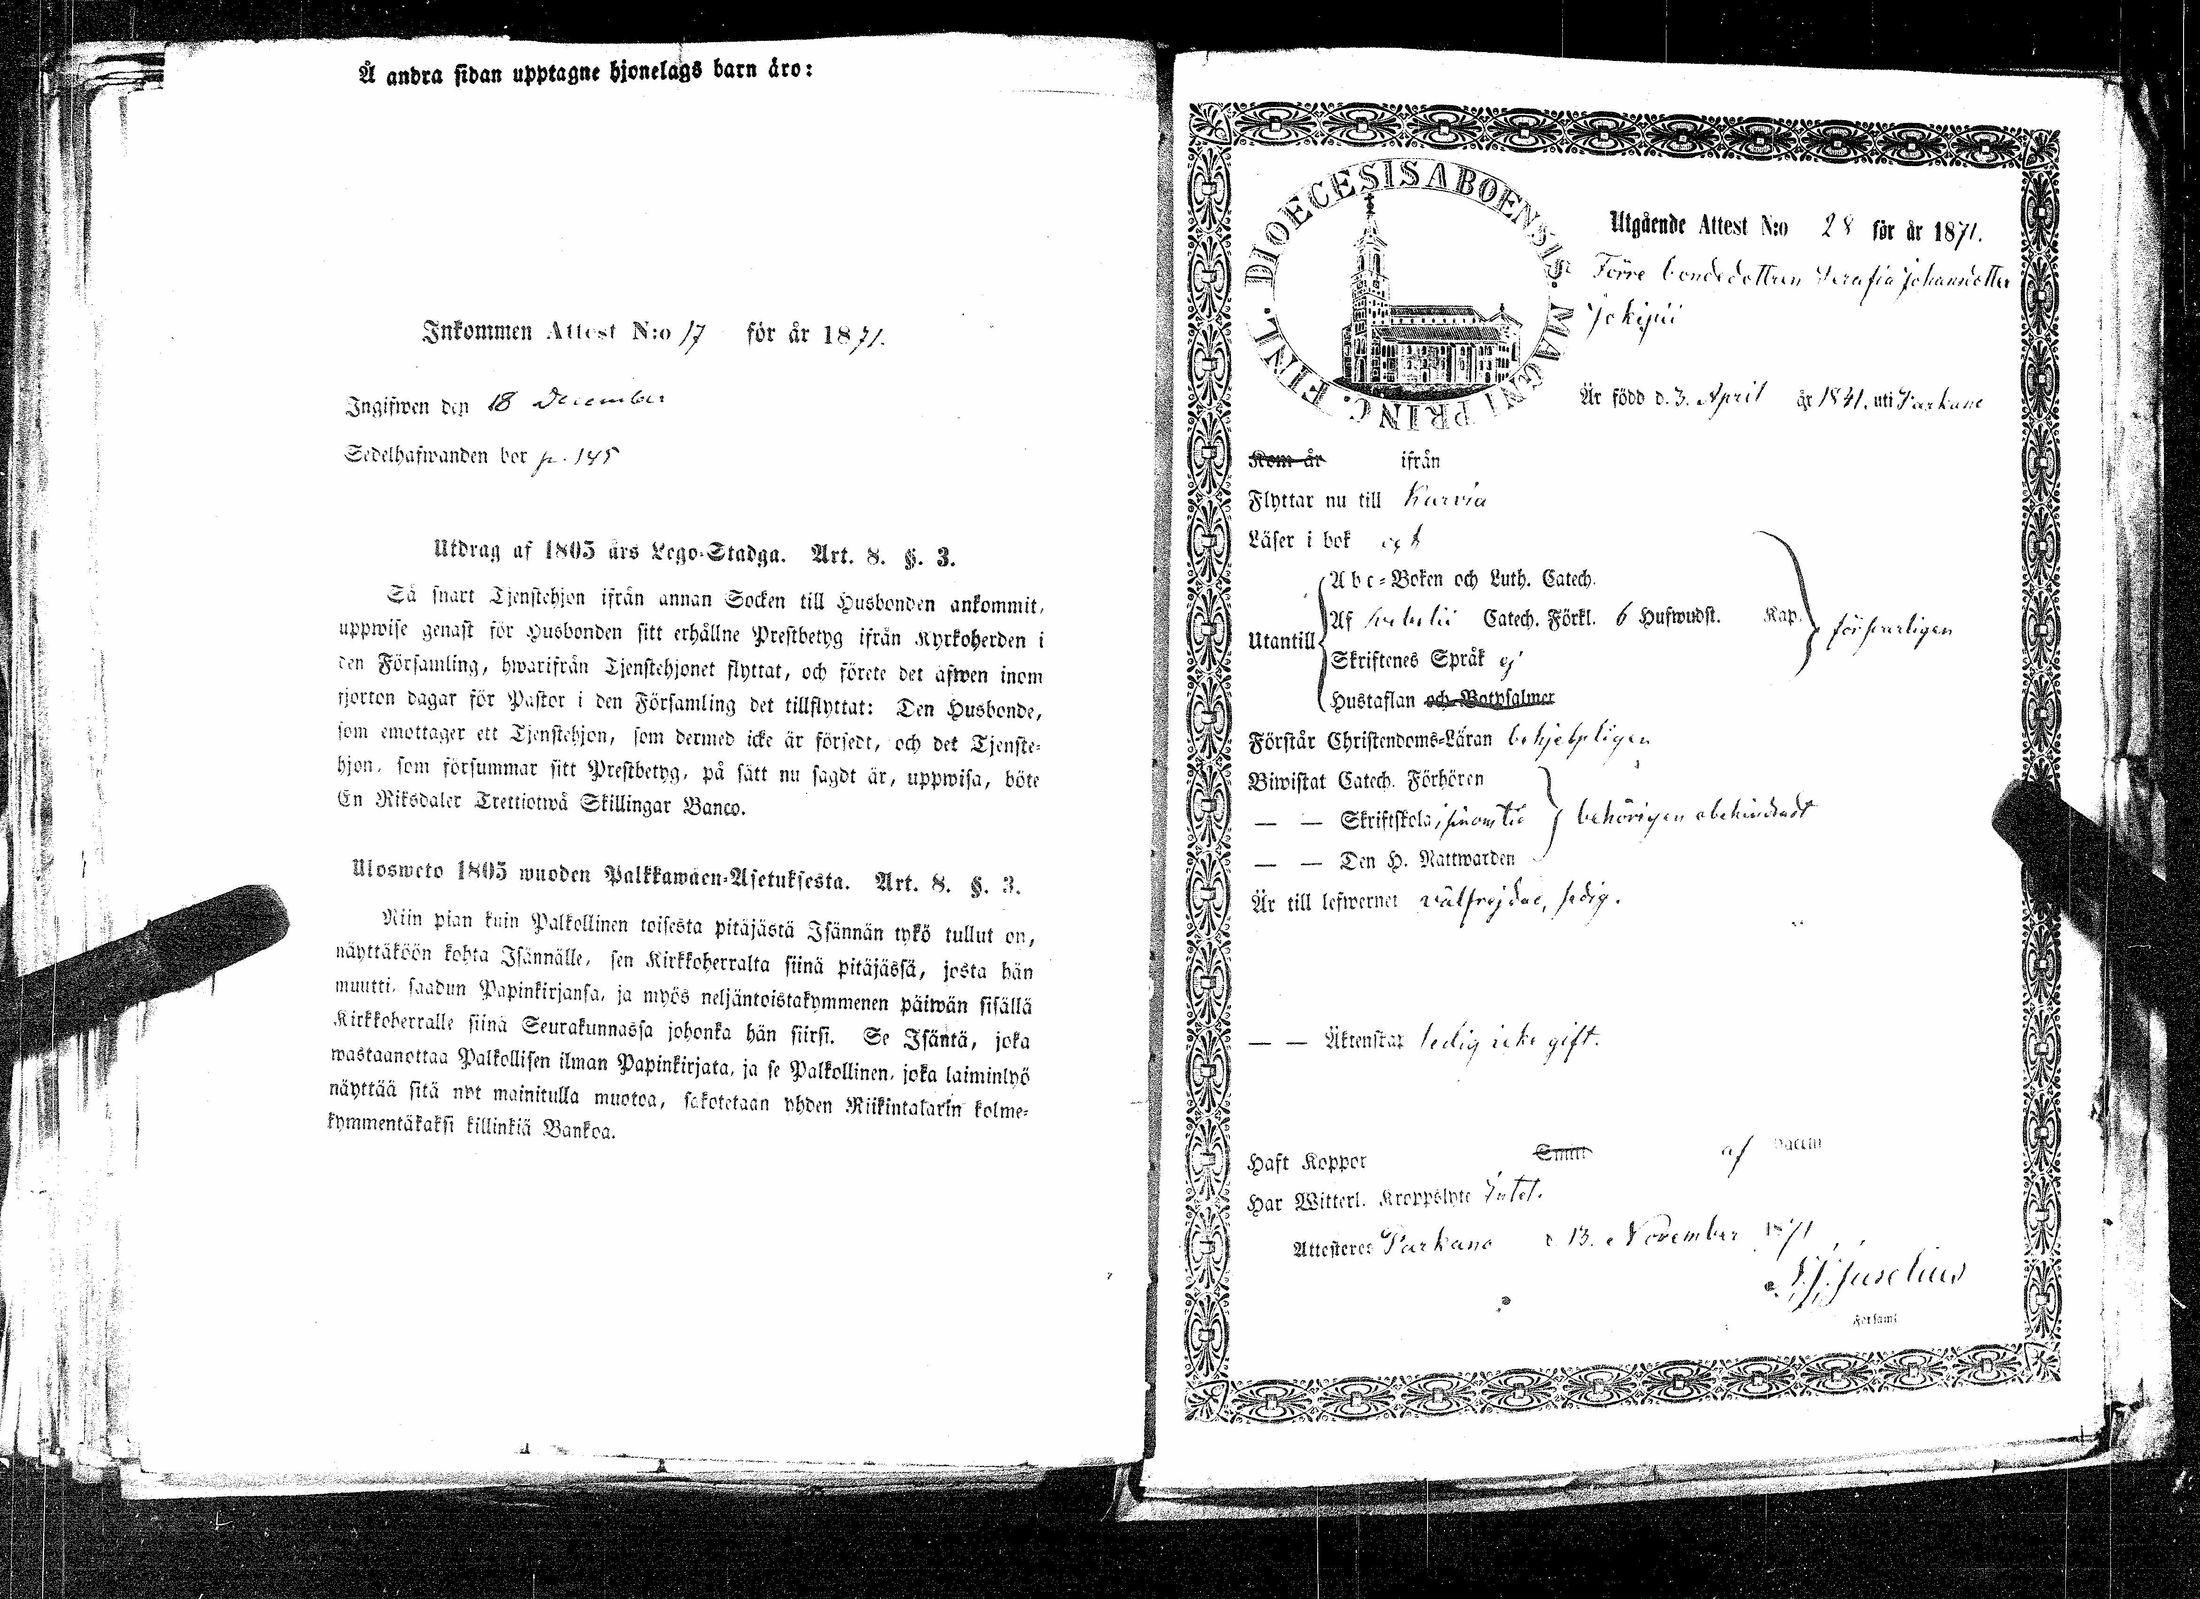 Å andra sidan upptagne hjonelags barn äro:
Inkommen Attest N:o 17 för år 1871.
Ingifwen den 18 December
Sedelhafwanden bor p. 145
Utdrag af 1805 års Lego-Stadga. Art. 8. §. 3.
Så snart Tjenstehjon ifrån annan Socken till Husbonden ankommit,
uppwise genast för Husbonden sitt erhållne Prestbetyg ifrån Kyrkoherden i
den Församling, hwarifrån Tjenstehjonet flyttat, och förete det äfwen inom
fjorton dagar för Pastor i den Församling det tillflyttat: Den Husbonde,
som emottager ett Tjenstehjon, som dermed icke är försedt, och det Tjenste-
hjon, som försummar sitt Prestbetyg, på sätt nu sagdt är, uppwisa, böte
En Riksdaler Trettiotwå Skillingar Banco.
Ulosweto 1805 wuoden Palkkawäen-Asetuksesta. Art. 8. §. 3.
Niin pian kuin Palkollinen toisesta pitäjästä Isännän tykö tullut on,
näyttäköön kohta Isännälle, sen Kirkkoherralta siinä pitäjässä, josta hän
muutti, saadun Papinkirjansa, ja myös neljäntoistakymmenen päiwän sisällä
Kirkkoherralle siinä Seurakunnassa johonka hän siirsi. Se Isäntä, joka
wastaanottaa Palkollisen ilman Papinkirjata, ja se Palkollinen, joka laiminlyö
näyttää sitä nyt mainitulla muotoa, sakotetaan yhden Riikintalarin kolme-
kymmentäkaksi killinkiä Bankoa.
DIOECESIS ABOENSIS. MAGNI PRINC. FINL.
Utgående Attest N:o 28 för år 1871.
Förre bondedottren Serafia Johansdotter
Jokipii
Är född d. 3. April år 1841. uti Parkano
Kom år ifrån
Flyttar nu till Karvia
Läser i bok
Abc-Boken och Luth. Catech.
Utantill Af Catech. Förkl. 6 Hufwudst. Kap. försvarligen
Skriftenes Språk ej
Hustaflan och Botpsalmer
Förstår Christendoms-Läran behjelpligen
Biwistat Catech. Förhören
— — Skriftskola behörigen obehindradt
— — Den H. Nattwarden
Är till lefwernet välfrejdad, sedig.
— — Äktenskap ledig icke gift.
Haft Koppor Smitt af Vaccin
Har Witterl. Kroppslyte Intet.
Attesteres Parkano d. 13. November 1871
Juselius
Församl.